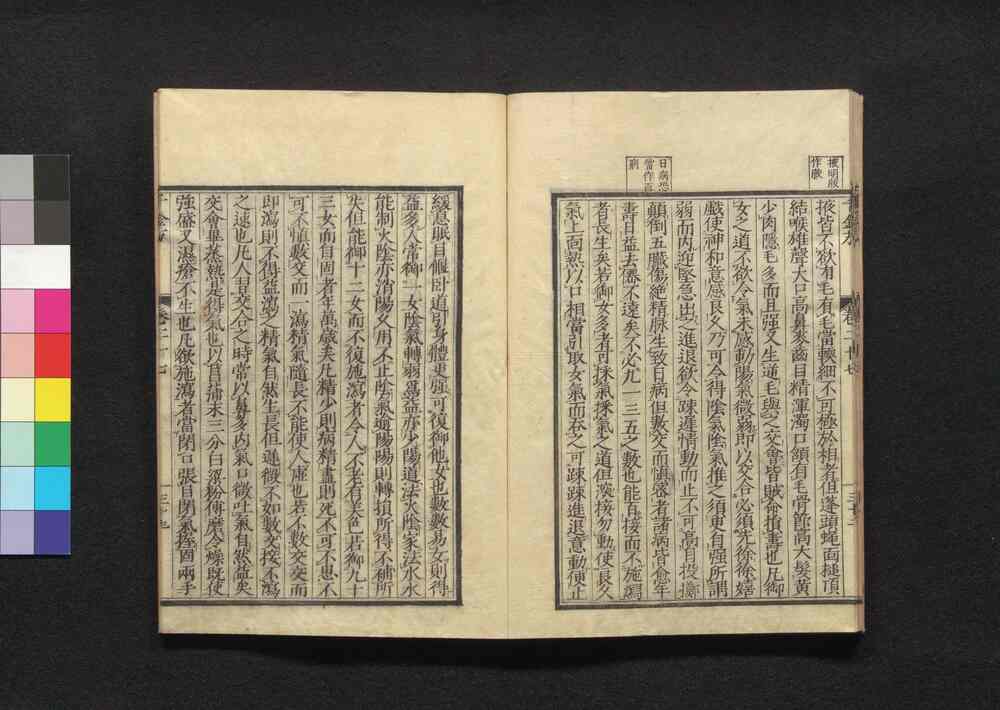 掖皆不欲有毛有毛當軟細不可極於相者但蓬頭蠅面槌頂
結喉雄聲大口高鼻麥齒目精渾濁口頷有毛骨節高大髮黃
少肉隱毛多而且強又生逆毛與之交會皆賊命損壽也凡御
女之道不欲令氣未感動陽氣微弱即以交合必須先徐徐嬉
戲使神和意感良久乃可令得陰氣陰氣推之須臾自強所謂
弱而內迎堅急出之進退欲令疎遲情動而止不可高自投擲
顛倒五臟傷絕精脉生致日病但數交而慎密者諸病皆愈年
壽日益去僊不遠矣不必九一三五之數也能百接而不施瀉
者長生矣若御女多者可採氣採氣之道但深接勿動使良久
氣上面熱以口相當引取女氣而吞之可疎疎進退意動便止
緩息眠目偃卧道引身體更強可復御他女也數數易女則得
益多人常御一女陰氣轉弱爲益亦少陽道法火陰家法水水
能制火陰亦消陽久用不止陰氣逾陽陽則轉損所得不補所
失但能御十二女而不復施瀉者令人不老有美色若御九十
三女而自固者年萬歲矣凡精少則病精盡則死不可不思不
可不慎數交而一瀉精氣隨長不能使人虛也若不數交交而
即瀉則不得益瀉之精氣自然生長但遲微不如數交接不瀉
之速也凡人習交合之時常以鼻多內氣口微吐氣自然益矣
交會畢蒸熱是得氣也以菖蒲末三分白粱粉傅摩令燥既使
強盛又濕瘡不生也凡欲施瀉者當閉口張目閉氣握固兩手